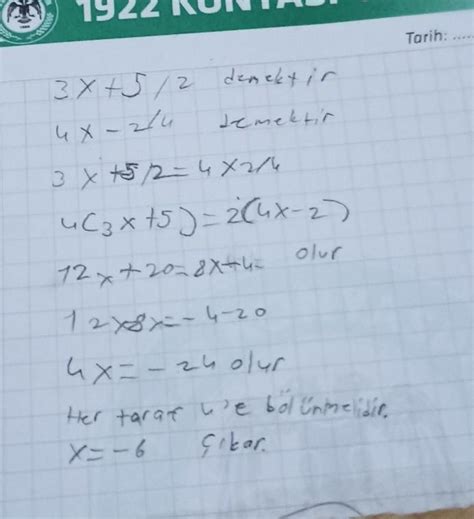 1922 KONYASP
Tarih: .....
3x+5/2 demektir
4x-2/4 demektir
3x+5/2=4x2/4
4(3x+5)=2(4x-2)
12x+20=8x+4= olur
12x8x=-4-20
4x=-24 olur
Her taraf 4'e bölünmelidir.
x=-6 Çıkar.